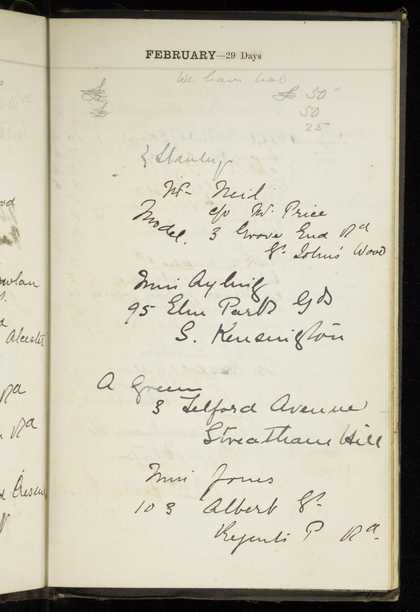 FEBRUARY—29 Days
We have had
£ 50
50
25
& Stanley
Mr Neil
c/o Mr. Price
Model. 3 Grove End Rd
St. John's Wood
Miss Ayling
95 Elm Park Gds
S. Kensington
A Green
3 Telford Avenue
Streatham Hill
Miss Jones
103 Albert St.
Regents P Rd.
Alcester
Rd
Rd
Crescent